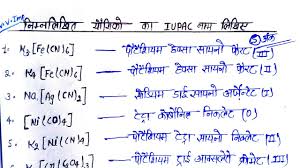 V.V.Imp
निम्नलिखित यौगिको का IUPAC नाम लिखिए
1. K3[Fe(CN)6] → पोटेशियम हेक्सा सायनो फेरेट (III)
2. K4[Fe(CN)6] → पोटेशियम हेक्सा सायनो फेरेट (II)
3. [Ag(CN)2] → सोडियम डाई सायनो अर्जेन्टेट (I)
4. [Ni(CO)4] → टेट्रा कार्बोनिल निकलेट (0)
5. K2[Ni(CN)4] → पोटेशियम टेट्रा सायनो निकलेट (II)
→ पोटेशियम ट्राई (III)